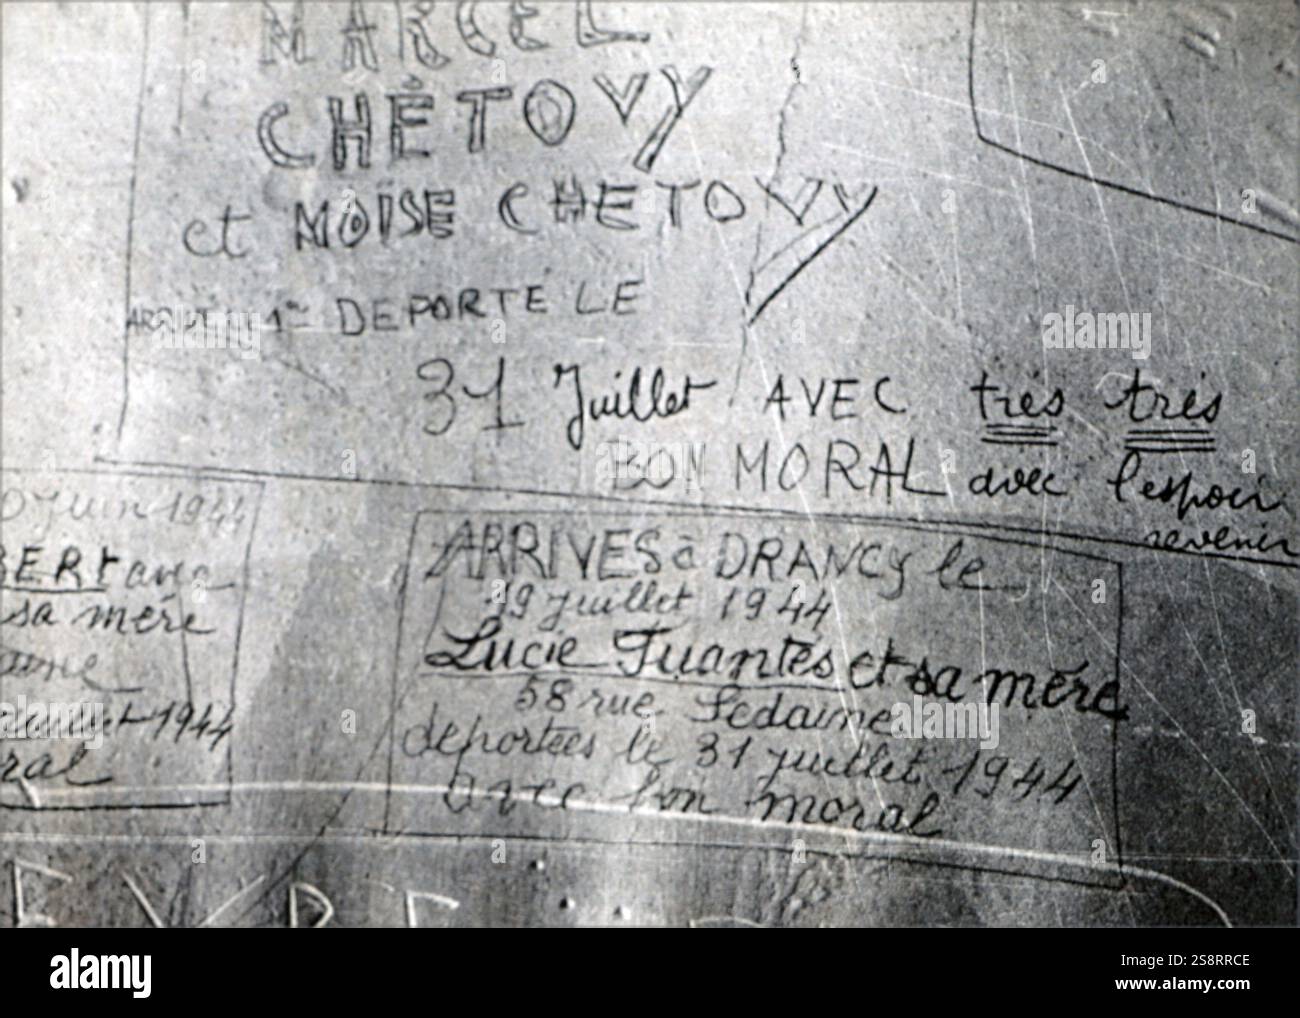 MARCEL
CHÉTOVY
et MOÏSE CHETOVY
ARRIVÉ LE 1er DEPORTÉ LE
31 Juillet AVEC très très
BON MORAL avec l'espoir
revenir
Juin 1944
BERT avec
sa mère
1944
ral
ARRIVÉS à DRANCY le
19 Juillet 1944
Lucie Fuantès et sa mère
58 rue Sedaine
deportées le 31 juillet 1944
avec bon moral
alamy
Image ID: 2S8RRCE
www.alamy.com